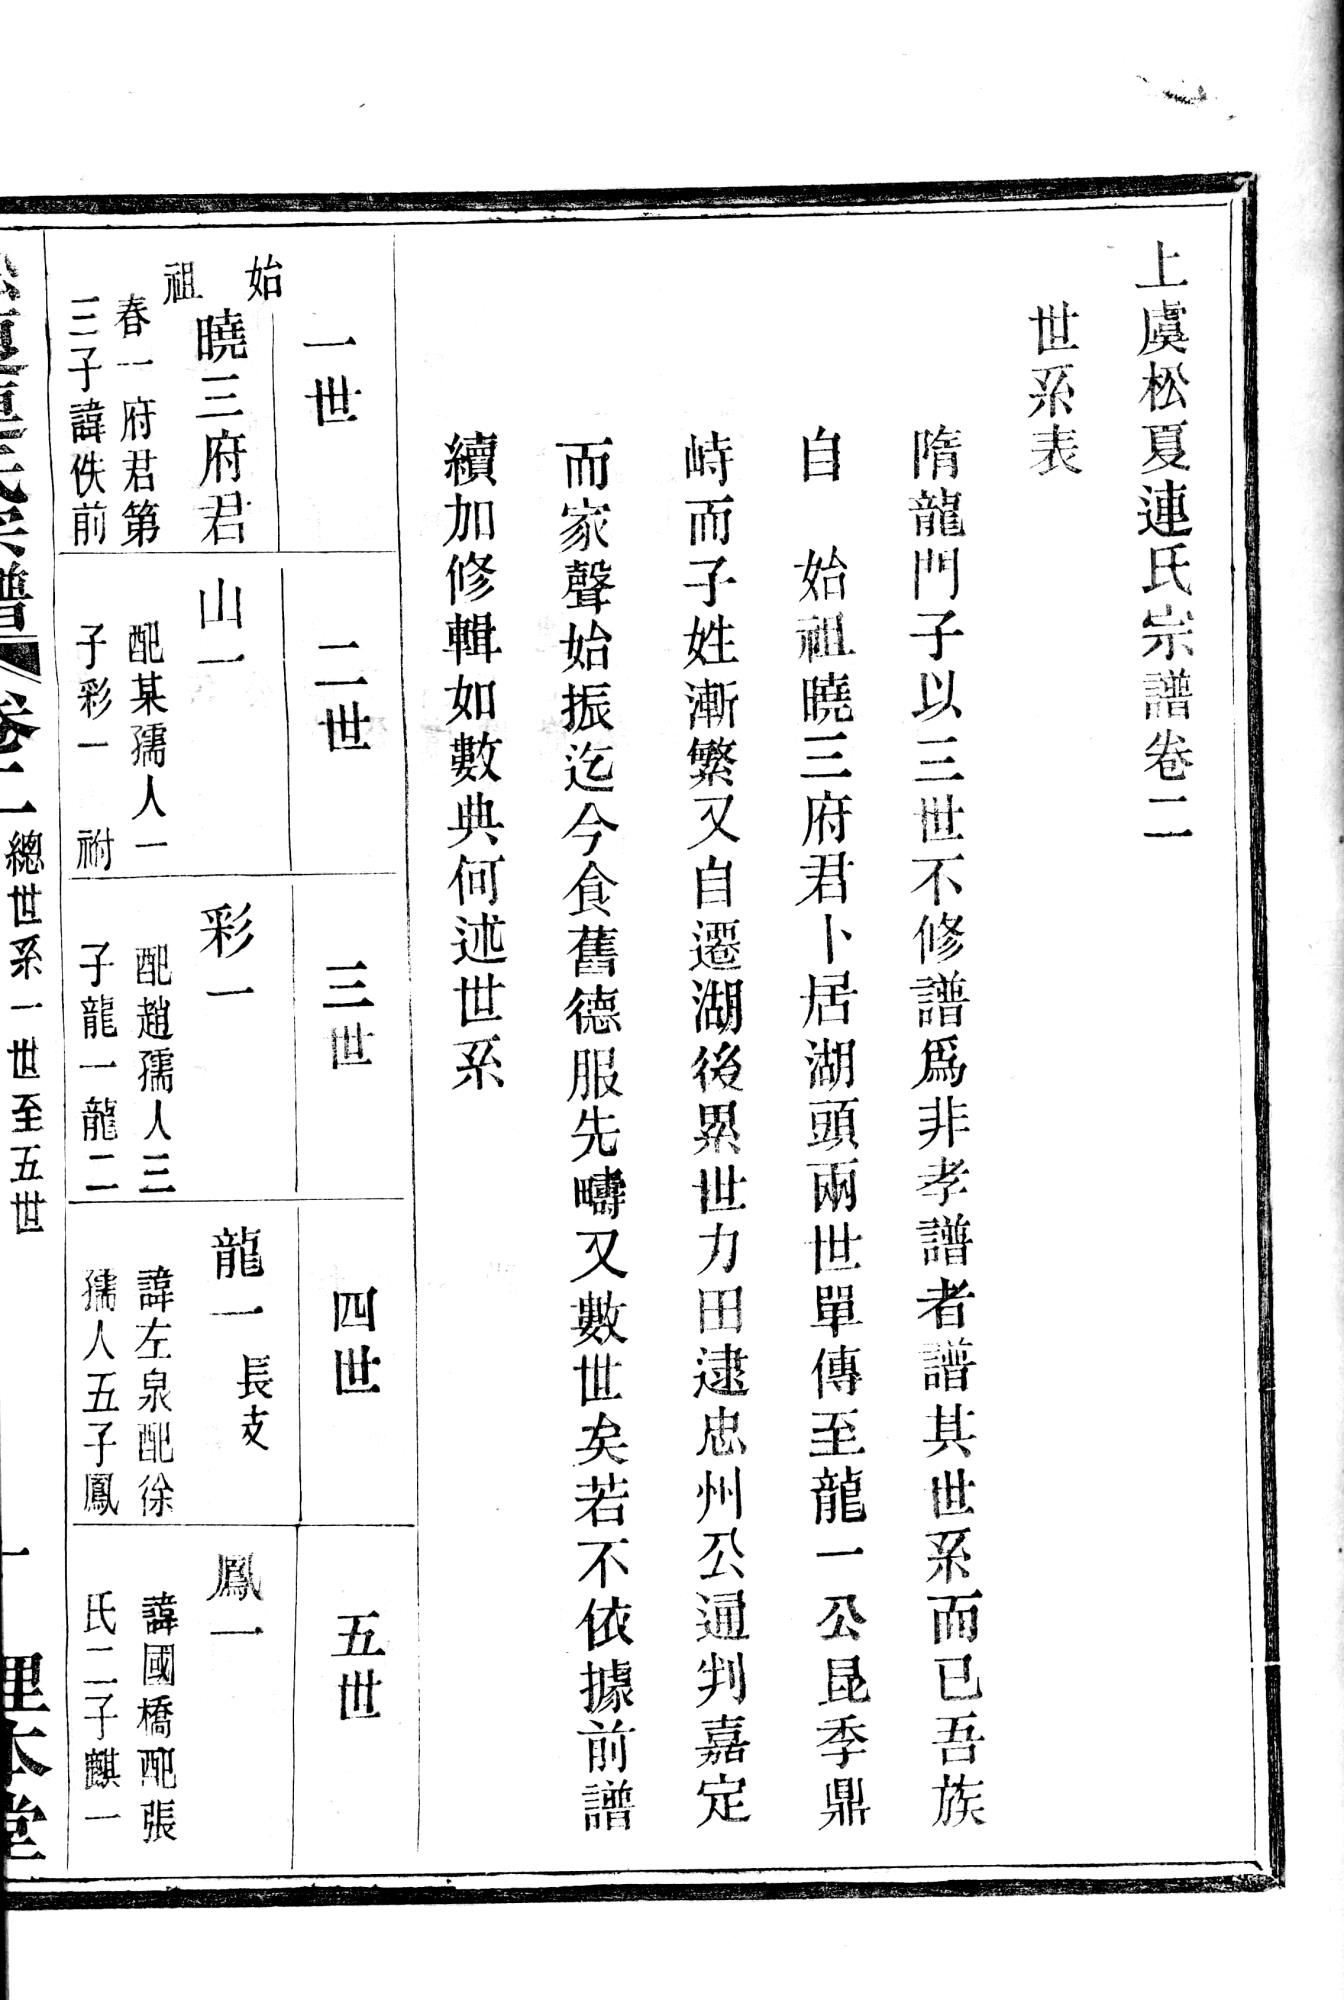 上虞松夏連氏宗譜卷二
世系表
隋龍門子以三世不修譜爲非孝譜者譜其世系而已吾族
自　始祖曉三府君卜居湖頭兩世單傳至龍一公昆季鼎
峙而子姓漸繁又自遷湖後累世力田逮忠州公通判嘉定
而家聲始振迄今食舊德服先疇又數世矣若不依據前譜
續加修輯如數典何述世系
一世
始祖
曉三府君
春一府君第
三子諱佚前
二世
山一
配某孺人一
子彩一　祔
三世
彩一
配趙孺人三
子龍一龍二
四世
龍一　長支
諱左泉配徐
孺人五子鳳
五世
鳳一
諱國橋配張
氏二子麒一
松夏連氏宗譜　卷二　總世系一世至五世　一　理本堂